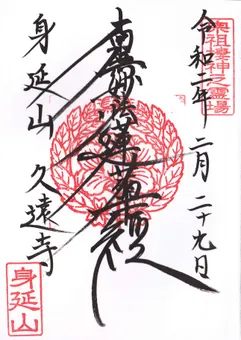 奥祖棲神之霊場
令和二年二月二十九日
南無妙法蓮華経
身延山 久遠寺
身延山